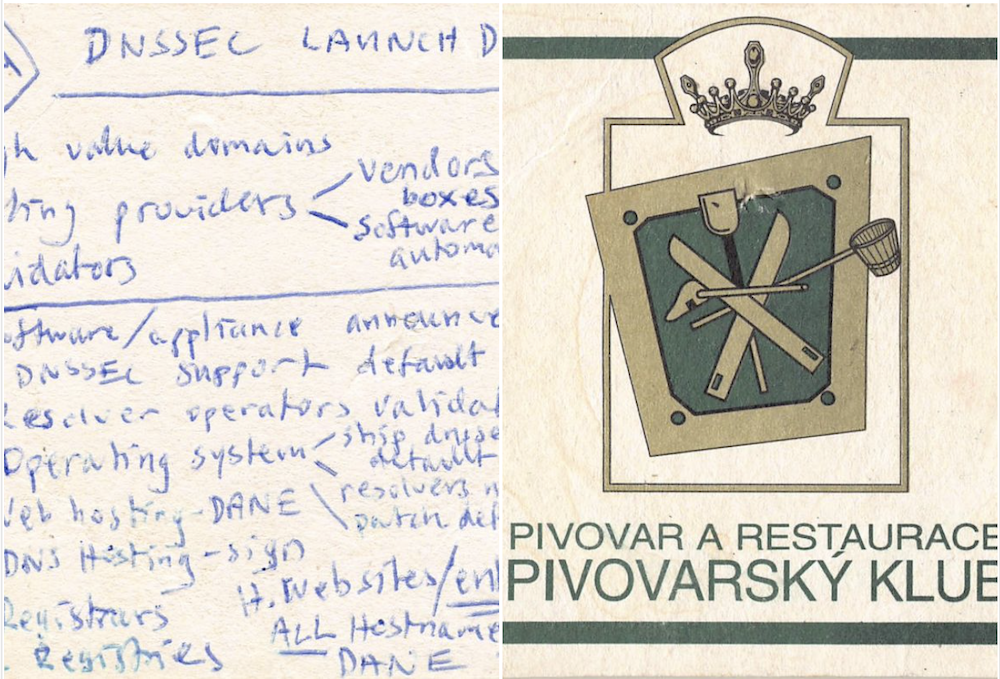 DNSSEC LAUNCH D
gh value domains
ting providers
vendors
boxes
software
automa
idators
oftware/appliance announce
DNSSEC support default
Resolver operators valida
Operating system
ship dnsse
default
resolvers
patch def
Web hosting-DANE
DNS Hosting-sign
H. Websites/en
Registrars
ALL Hostname
Registries
DANE
PIVOVAR A RESTAURACE
PIVOVARSKÝ KLUB